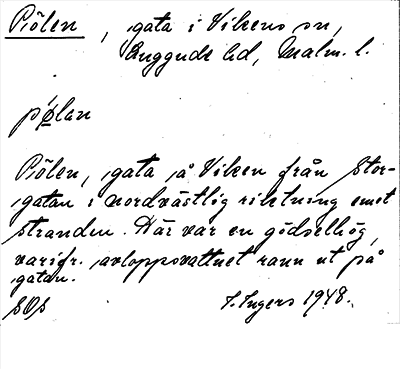 Piölen, gata i Vikens sn,
Luggude hd, Malm. l.
pǿlan
Piölen, gata på Viken från Stor-
gatan i nordvästlig riktning emot
stranden. Där var en gödselhög,
varifr. avloppsvattnet rann ut på
gatan.
SOS
I. Ingers 1948.